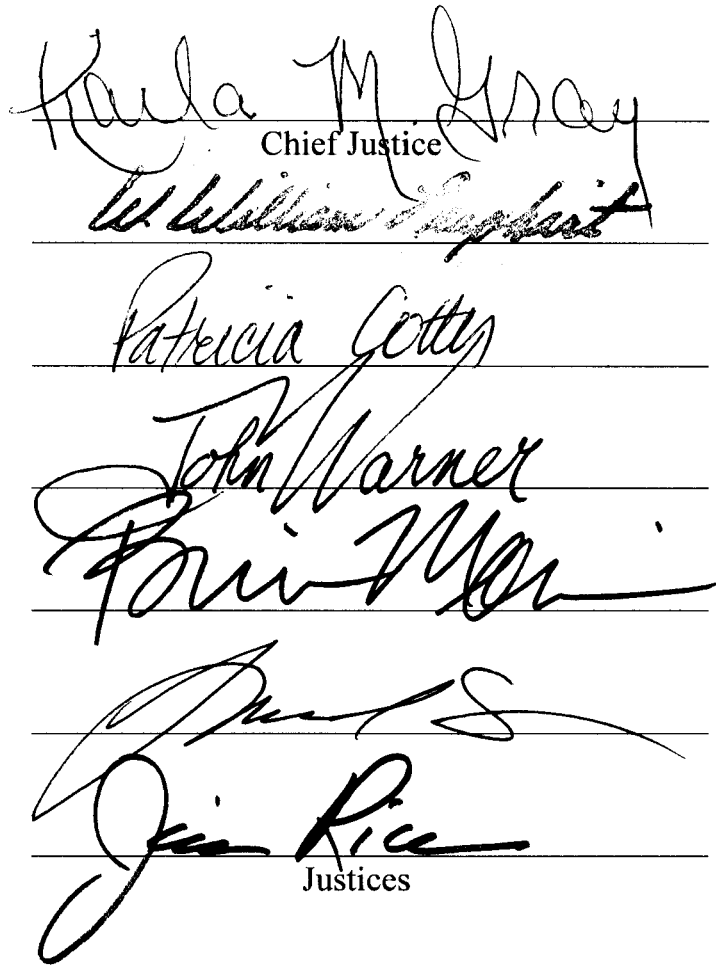 Karla M. Gray
Chief Justice
W. William Leaphart
Patricia Cotter
John Warner
Brian Morris
Jim Rice
Justices